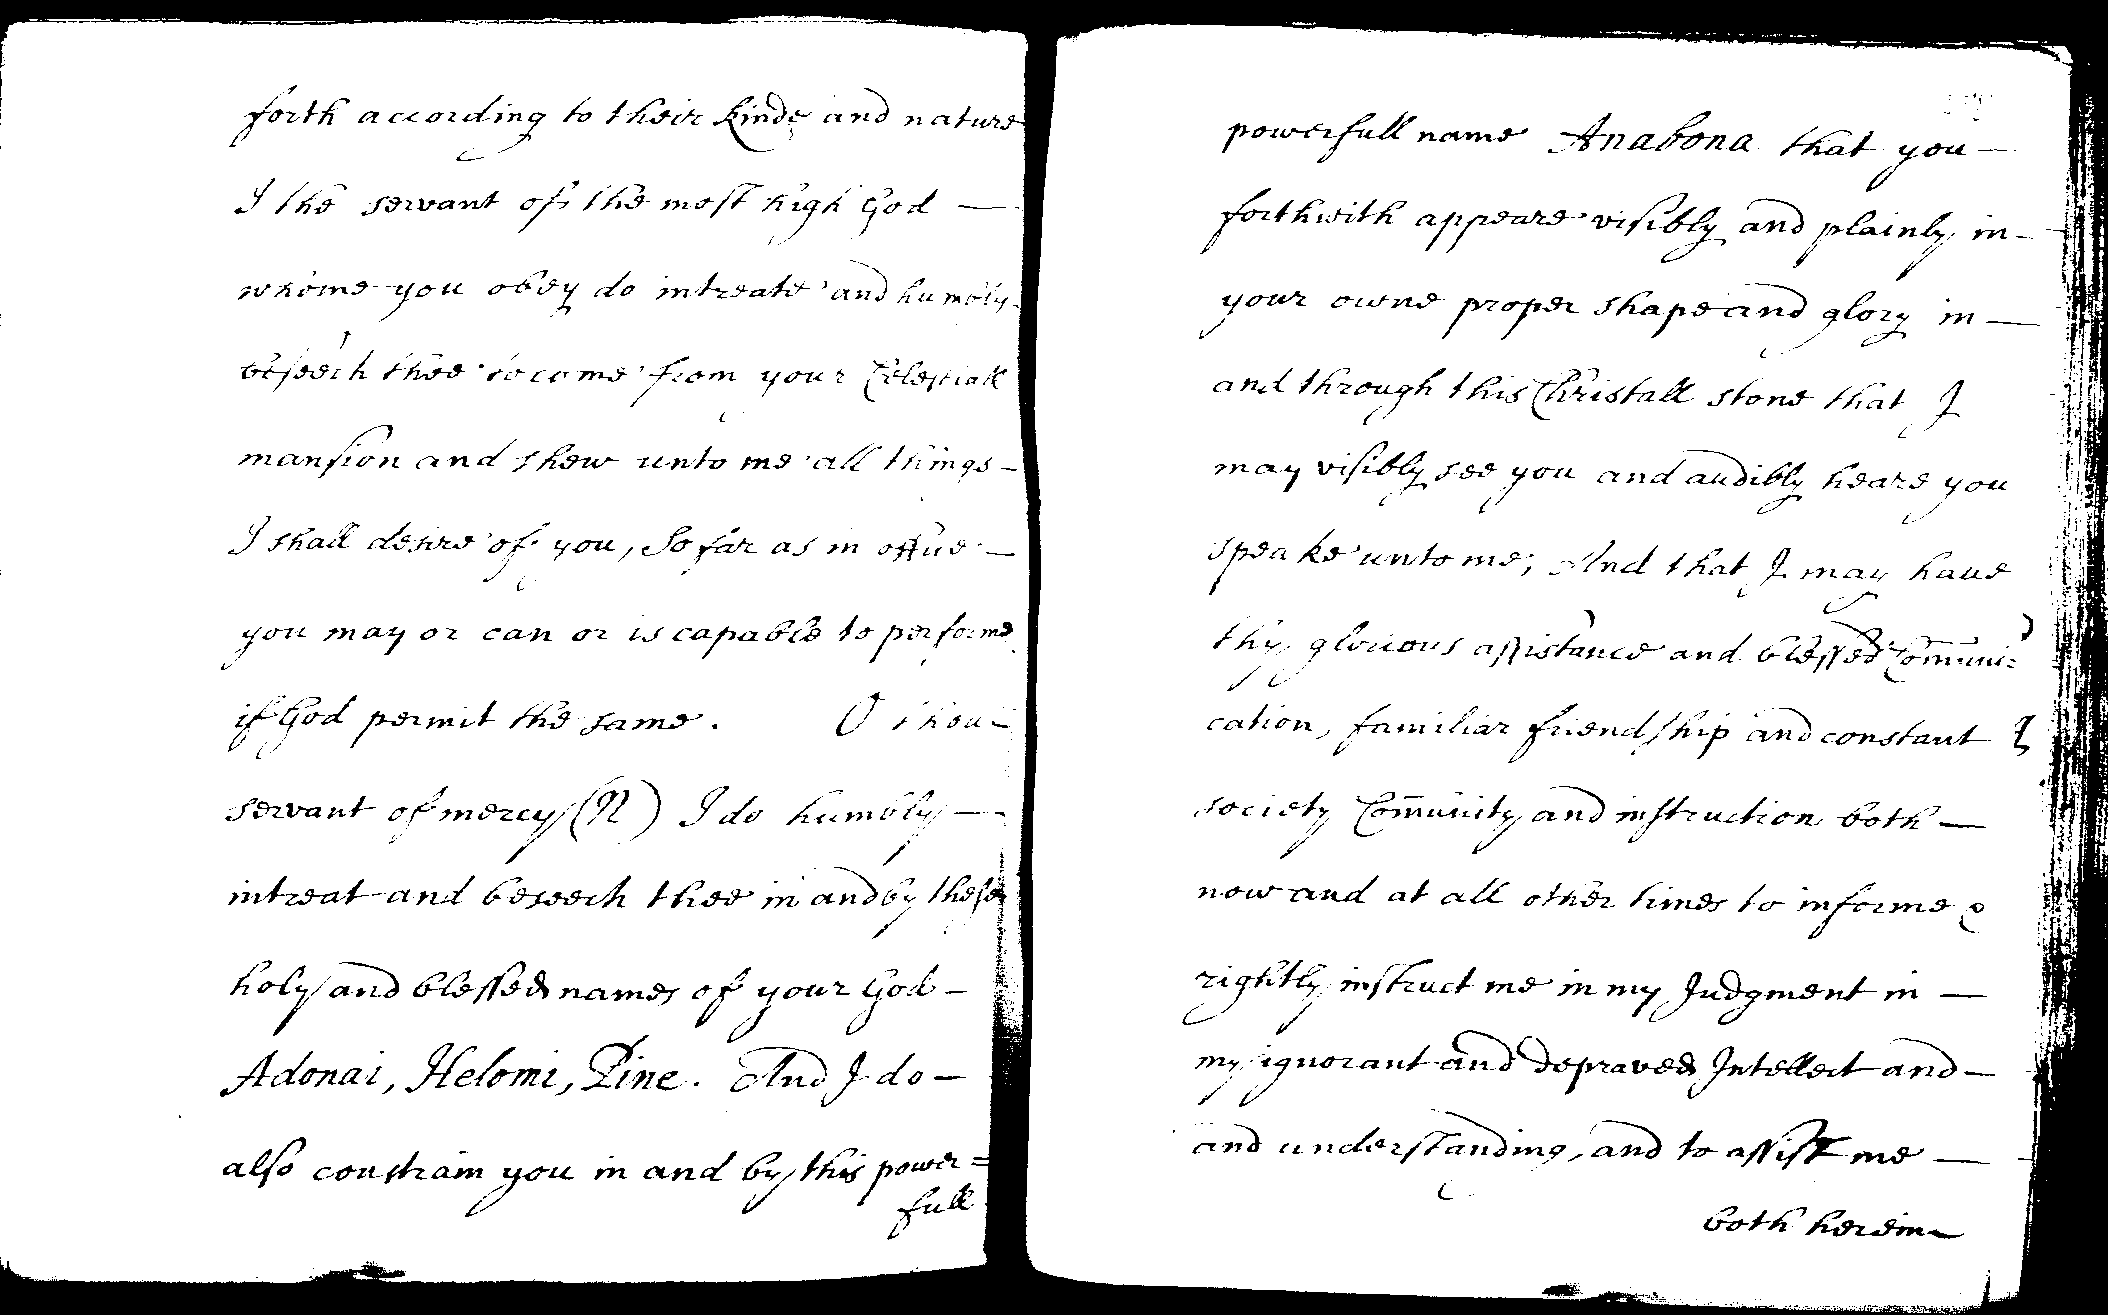 forth according to their kinde and nature
I the servant of the most high God —
whome you obey do intreate and humbly
beseech thee to come from your Celestiall
mansion and shew unto me all things —
I shall desire of you, So far as in office —
you may or can or is capable to performe
if God permit the same. O thou —
servant of mercy (N) I do humbly —
intreat and beseech thee in and by these
holy and blessed names of your God —
Adonai, Helomi, Pine. And I do —
also constrain you in and by this power=
full
powerfull name Anabona that you —
forthwith appeare visibly and plainly in —
your owne proper shape and glory in —
and through this Christall stone that I
may visibly see you and audibly heare you
speake unto me, And that I may have
thy glorious assistance and blessed Com̄uni=
cation, familiar friendship and constant
society Com̄unity and instruction both —
now and at all other times to informe &
rightly instruct me in my Judgment in —
my ignorant and depraved Intellect and —
and understanding, and to assist me —
both herein